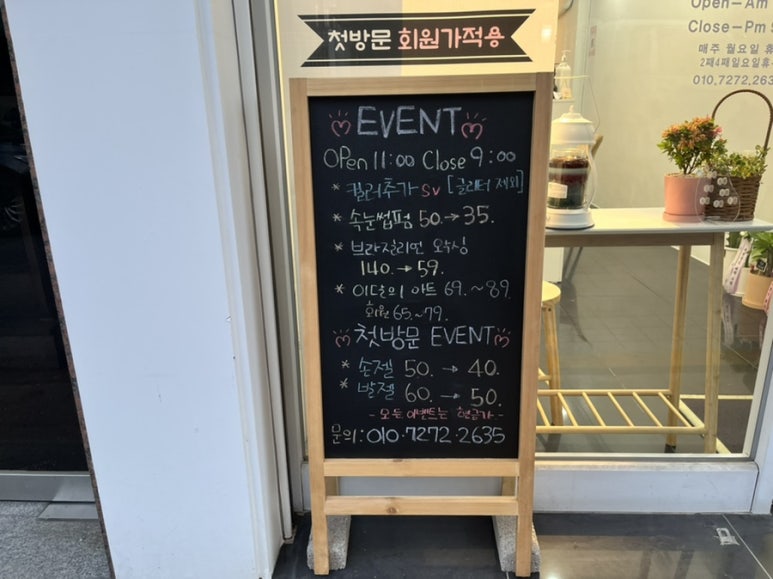 첫방문 회원가적용
EVENT
OPen 11:00 Close 9:00
* 컬러추가 sv [글리터 제외]
* 속눈썹펌 50.→35.
* 브라질리언 왁싱
140.→59.
* 이달의 아트 69.~89.
회원 65.~79.
첫방문 EVENT
* 손젤 50. → 40.
* 발젤 60. → 50.
- 모든 이벤트는 현금가 -
문의: 010.7272.2635
Open-Am
Close-Pm
매주 월요일
2째4째일요일휴
010.7272.263